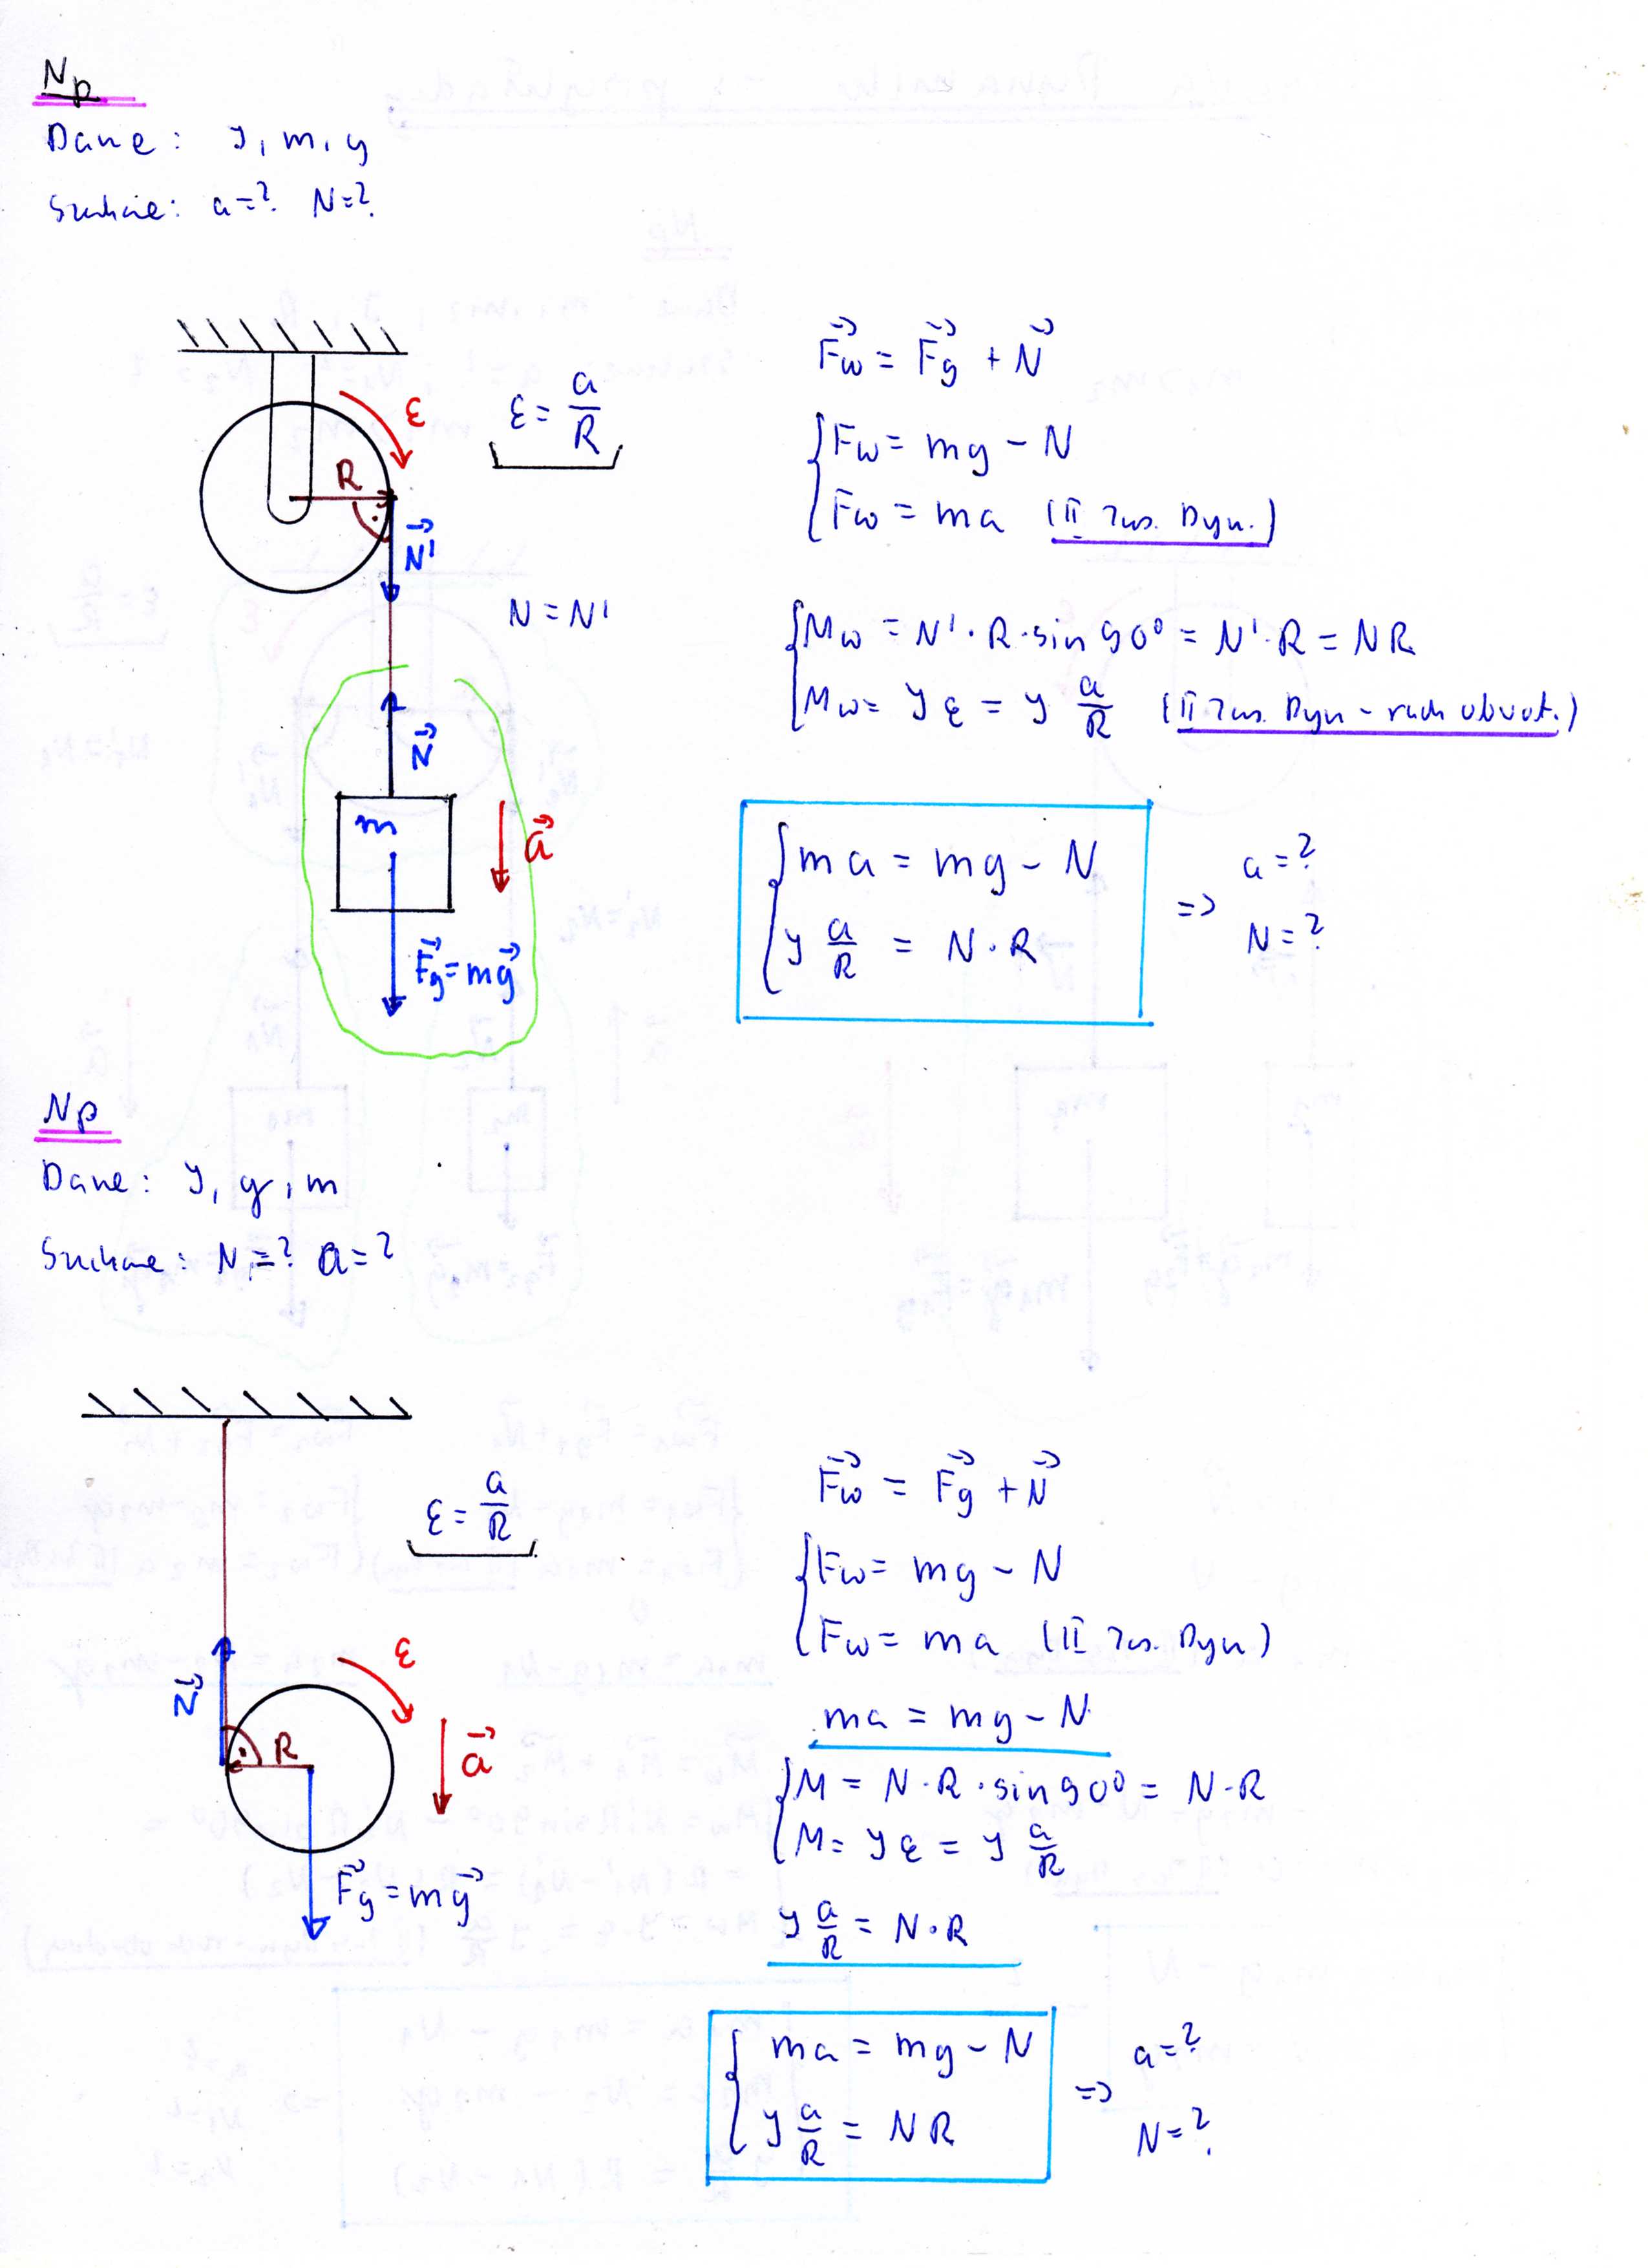 Np
Dane: J, m, g
Szukane: a=? N=?
ε = a/R
ε
R
N⃗'
N = N'
N⃗
m
a⃗
F⃗g = mg⃗
F⃗w = F⃗g + N⃗
Fw = mg - N
Fw = ma (II zas. Dyn.)
Mw = N'·R·sin 90° = N'·R = NR
Mw = J ε = J a/R (II zas. Dyn - ruch obrot.)
ma = mg - N
J a/R = N·R
=> a=?
N=?
Np
Dane: J, g, m
Szukane: N=? a=?
ε = a/R
N⃗
ε
R
a⃗
F⃗g = mg⃗
F⃗w = F⃗g + N⃗
Fw = mg - N
Fw = ma (II zas. Dyn)
ma = mg - N
M = N·R·sin 90° = N·R
M = J ε = J a/R
J a/R = N·R
ma = mg - N
J a/R = NR
=> a=?
N=?